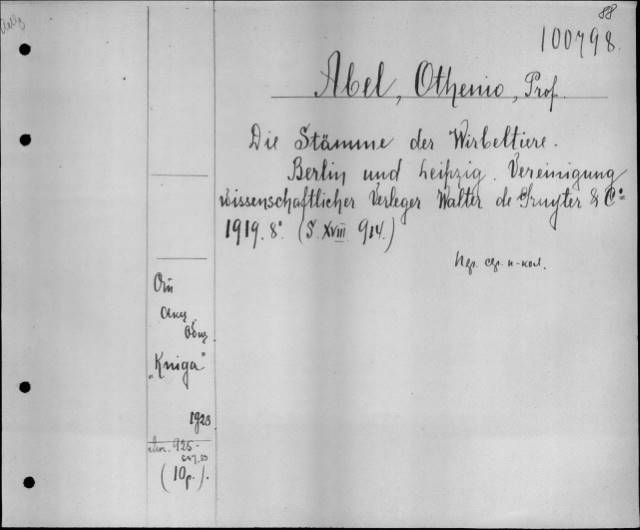 88
100798.
Abel, Othenio, Prof.
Die Stämme der Wirbeltiere.
Berlin und Leipzig. Vereinigung
wissenschaftlicher Verleger Walter de Gruyter & Cº
1919. 8º. (S. XVIII. 914.)
От
Акц.
Общ.
"Kniga"
1923
925-
(10р.).